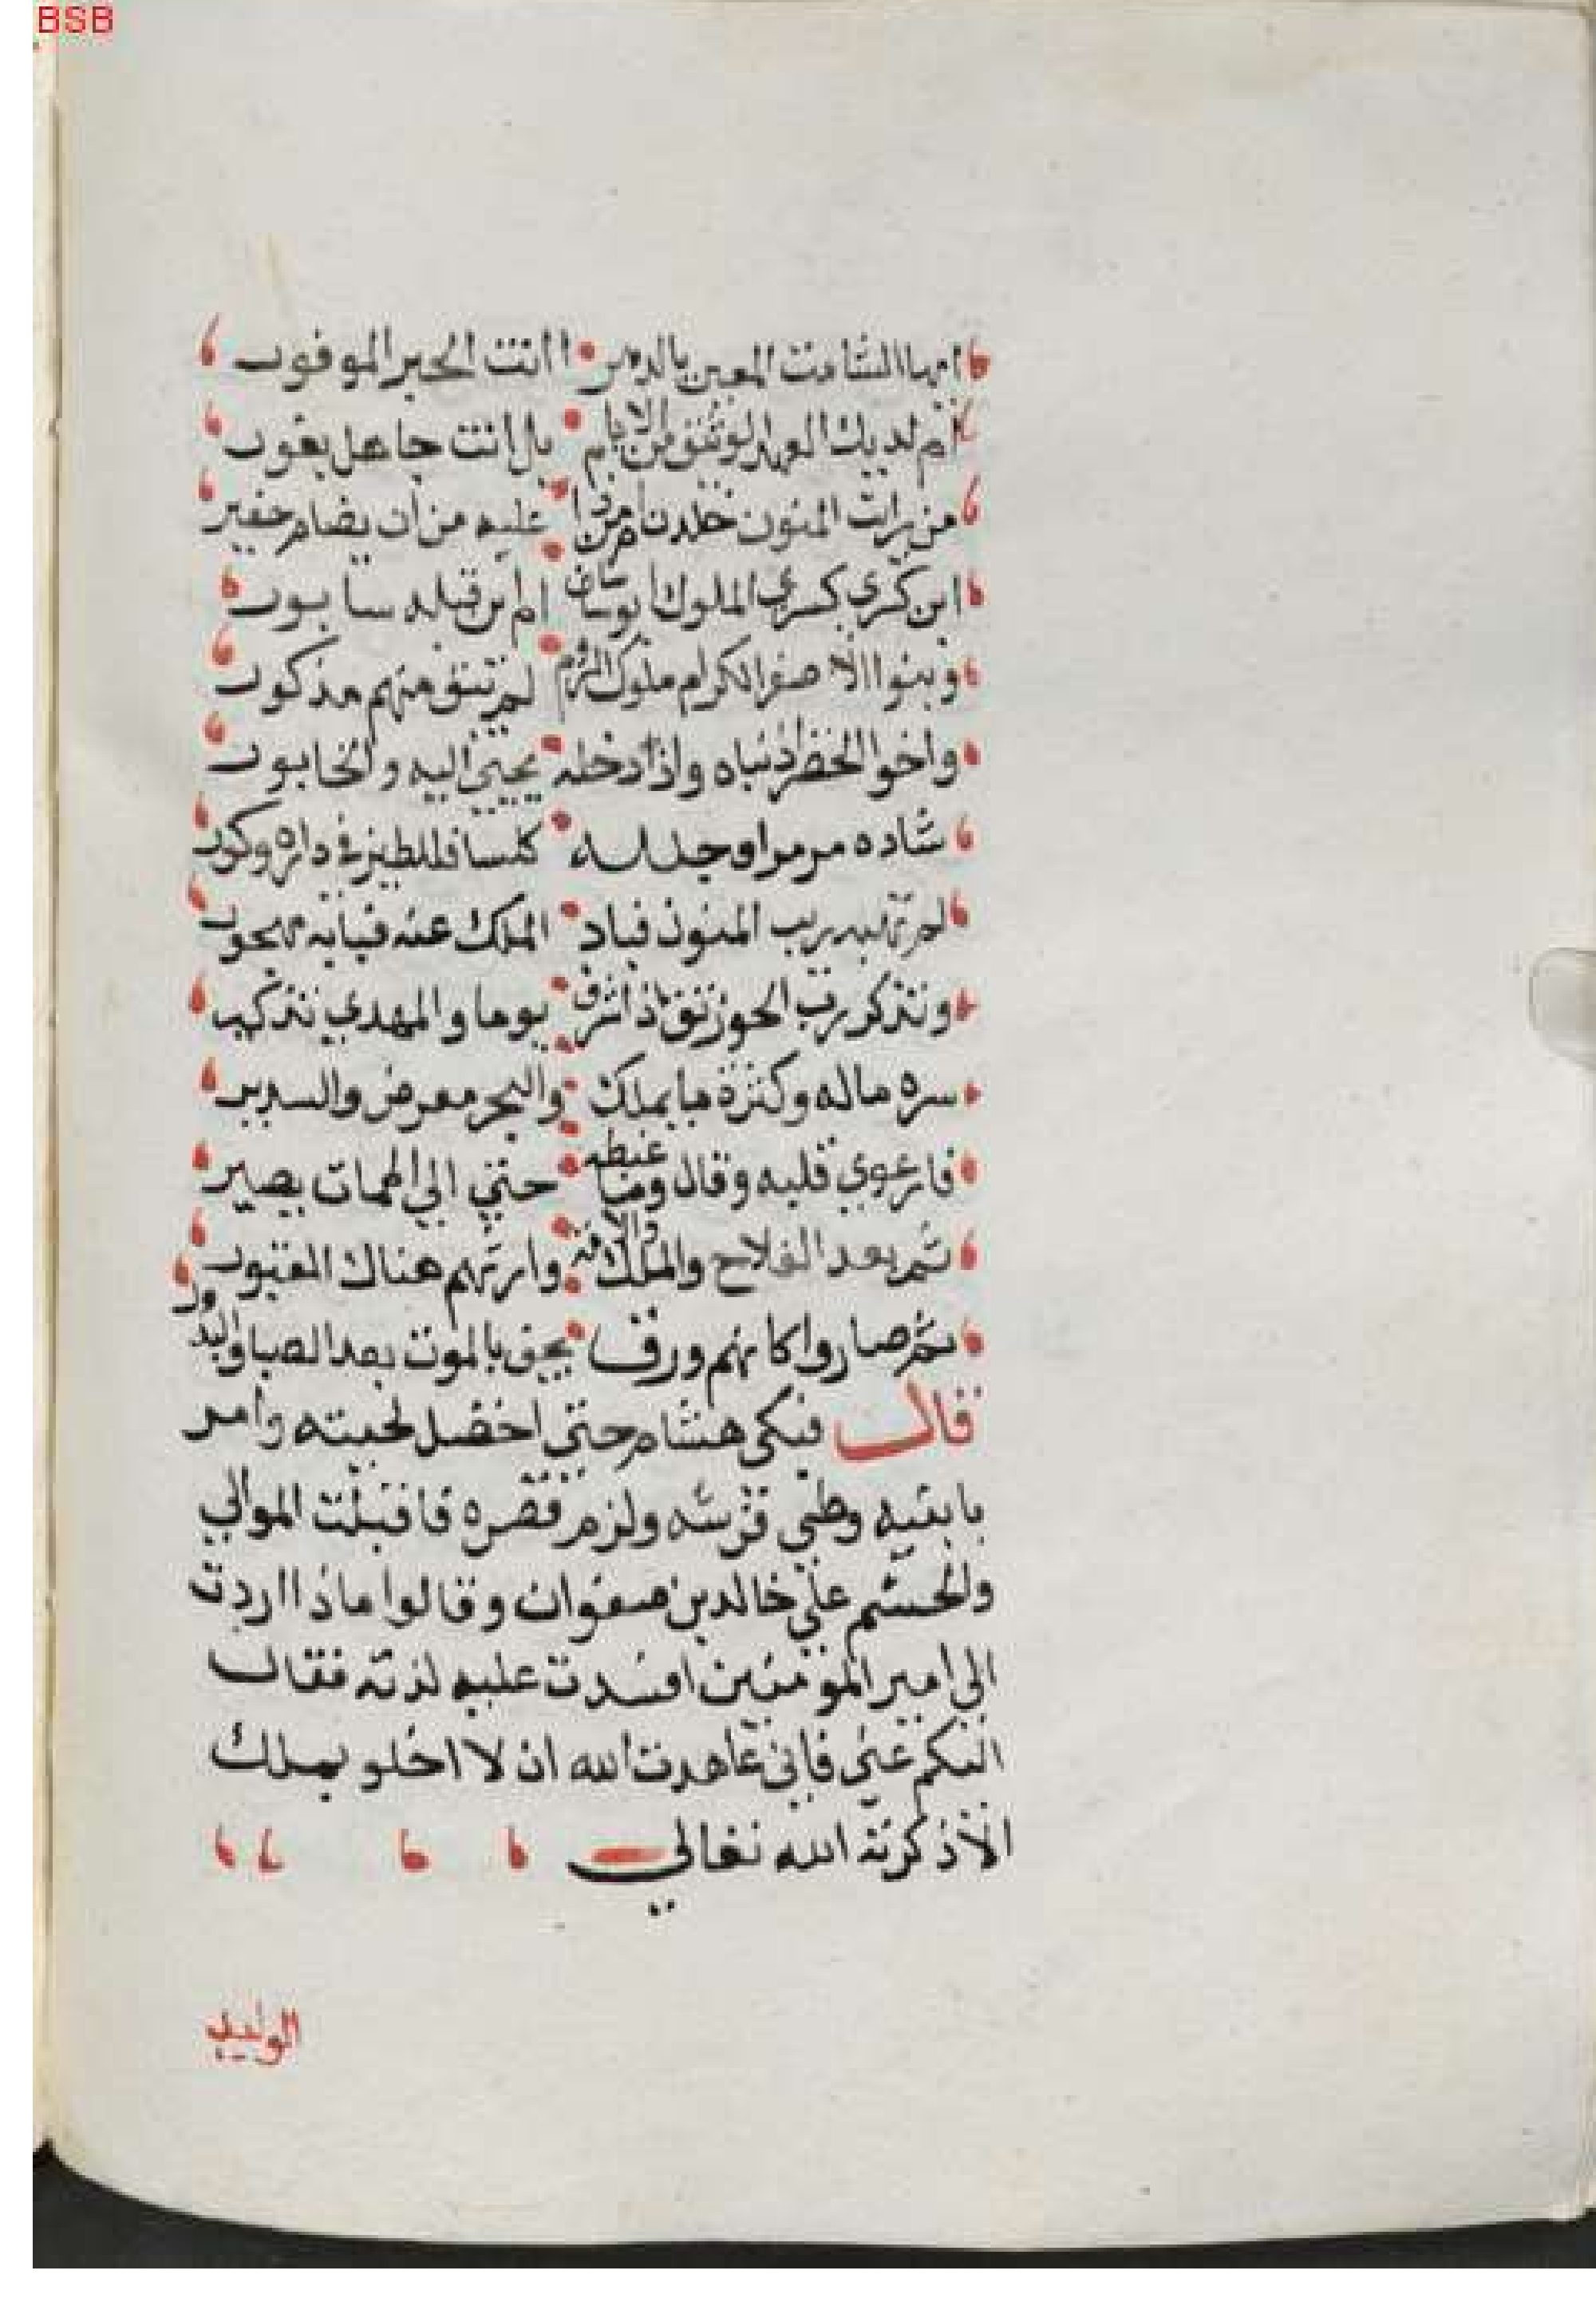 BSB
ايها الشامت المعير بالدهر اانت الخبير الموفور
ام لديك العهد الوثيق من الايام بل انت جاهل بغرور
من رايت المنون خلدن ام من ذا عليه من ان يضام خفير
اين كسرى كسرى الملوك ابوسان ام اين قبله سابور
وبنوا الاصفر الكرام ملوك الروم لم يبق منهم مذكور
واخوا الحضر اذ بناه واذ دجله يجبى اليه والخابور
شاده مرمرا وجلله كلسا فللطير في داره وكور
لم تهبه ريب المنون فباد الملك عنه فبابه مهجور
وتذكر رب الخورنق اذ اشرف يوما والمهدي تذكير
سره ماله وكثرة ما يملك والبحر معرض والسدير
فارعوى قلبه وقال وما غبطه حتى الى الممات يصير
ثم بعد الفلاح والملك والامة وارتهم هناك القبور
ثم صاروا كانهم ورق يجف بالموت بعد الصبا والبدور
قال فبكى هشام حتى اخضل لحيته وامر
بابنيه وطي فرشه ولزم قصره فاقبلت الموالي
والحشم على خالد بن صفوان وقالوا ماذا اردت
الى امير المومنين افسدت عليه لذته فقال
اليكم عني فاني عاهدت الله ان لا اخلو بملك
الا ذكرته الله تعالي
الوليد